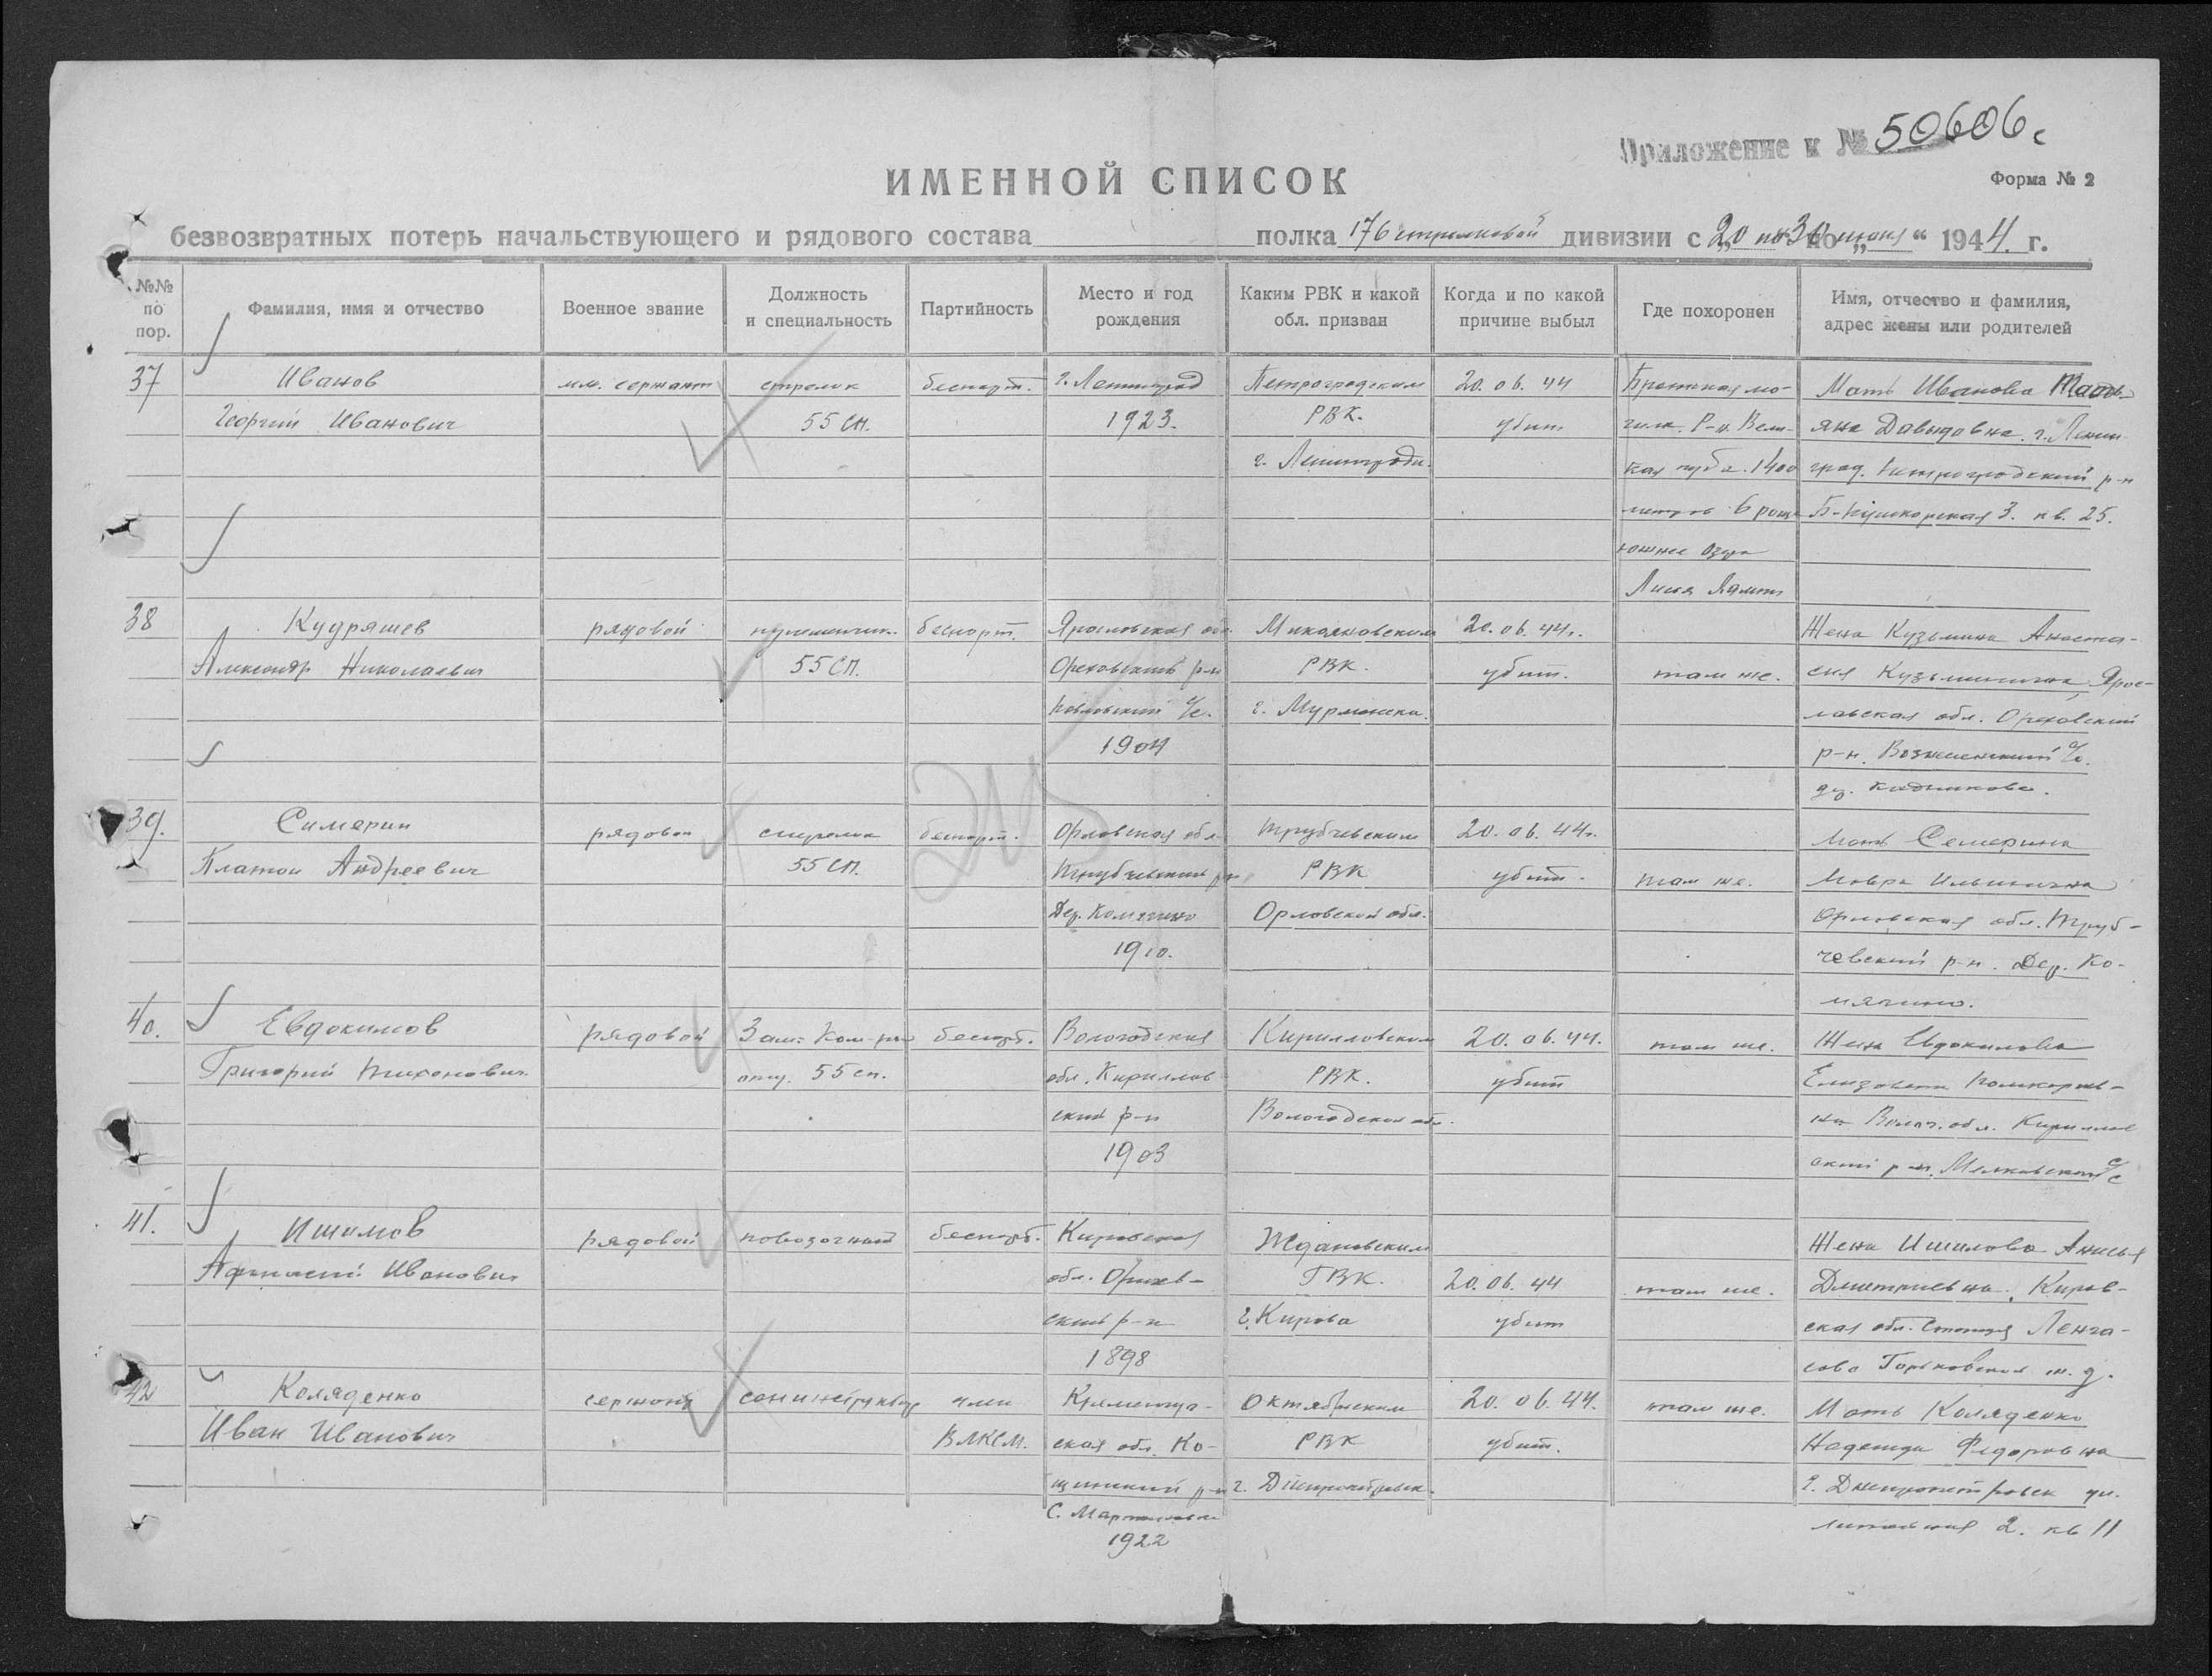 Приложение к № 50606с
ИМЕННОЙ СПИСОК
Форма № 2
безвозвратных потерь начальствующего и рядового состава полка 176 стрелковой дивизии с 20 по 30 июня 1944 г.
№№ по пор.
Фамилия, имя и отчество
Военное звание
Должность и специальность
Партийность
Место и год рождения
Каким РВК и какой обл. призван
Когда и по какой причине выбыл
Где похоронен
Имя, отчество и фамилия, адрес жены или родителей
37 Иванов мл. сержант стрелок беспарт. г. Ленинград Петроградским 20.06.44 Братская мо- Мать Иванова Тать-
Георгий Иванович 55 СП. 1923. РВК. убит гила. Р-н Вели- яна Давыдовна. г. Ленин-
г. Ленинграда. кая губа. 1400 град. Петроградский р-н
метров Б-Пушкарская 3. кв. 25.
южнее озера
38 Кудряшев рядовой пулеметчик беспарт. Ярославская обл. Микояновским 20.06.44г. Жена Кузьмина Анаста-
Александр Николаевич 55 СП. р-н РВК. убит. там же. сия Кузьминична Ярос-
с/с. г. Мурманска. лавская обл.
1904 р-н. с/с.
39. Симерин рядовой стрелок беспарт. Орловская обл. Трубчевским 20.06.44г. Мать Семерина
Платон Андреевич 55 СП. Трубчевский р-н РВК убит. там же. Мавра Ильинична
Дер. Комягино Орловской обл. Орловская обл. Труб-
1910. чевский р-н. Дер. Ко-
мягино.
40. Евдокимов рядовой Зам. Ком-ра беспарт. Вологодская Кирилловским 20.06.44. там же. Жена Евдокимова
Григорий Тихонович. отд. 55 сп. обл. Кириллов РВК. убит Елизавета Поликарпов-
ский р-н Вологодской обл. на Волог. обл. Кириллов
1903 ский р-н. с/с
41. Ишимов рядовой повозочный беспарт. Кировская Ждановским Жена Ишимова Анисья
Иванович обл. Оричев- ГВК. 20.06.44 там же. Дмитриевна. Киров-
ский р-н г. Кирова убит ская обл. Станция Ленга-
1898 сово Горьковской ж.д.
42 Коляденко сержант санинструктор член Октябрьским 20.06.44. там же. Мать Коляденко
Иван Иванович ВЛКСМ. ская обл. Ко- РВК убит. Надежда Федоровна
р-н г. Днепропетровск. г. Днепропетровск ул.
с. 2. кв 11
1922